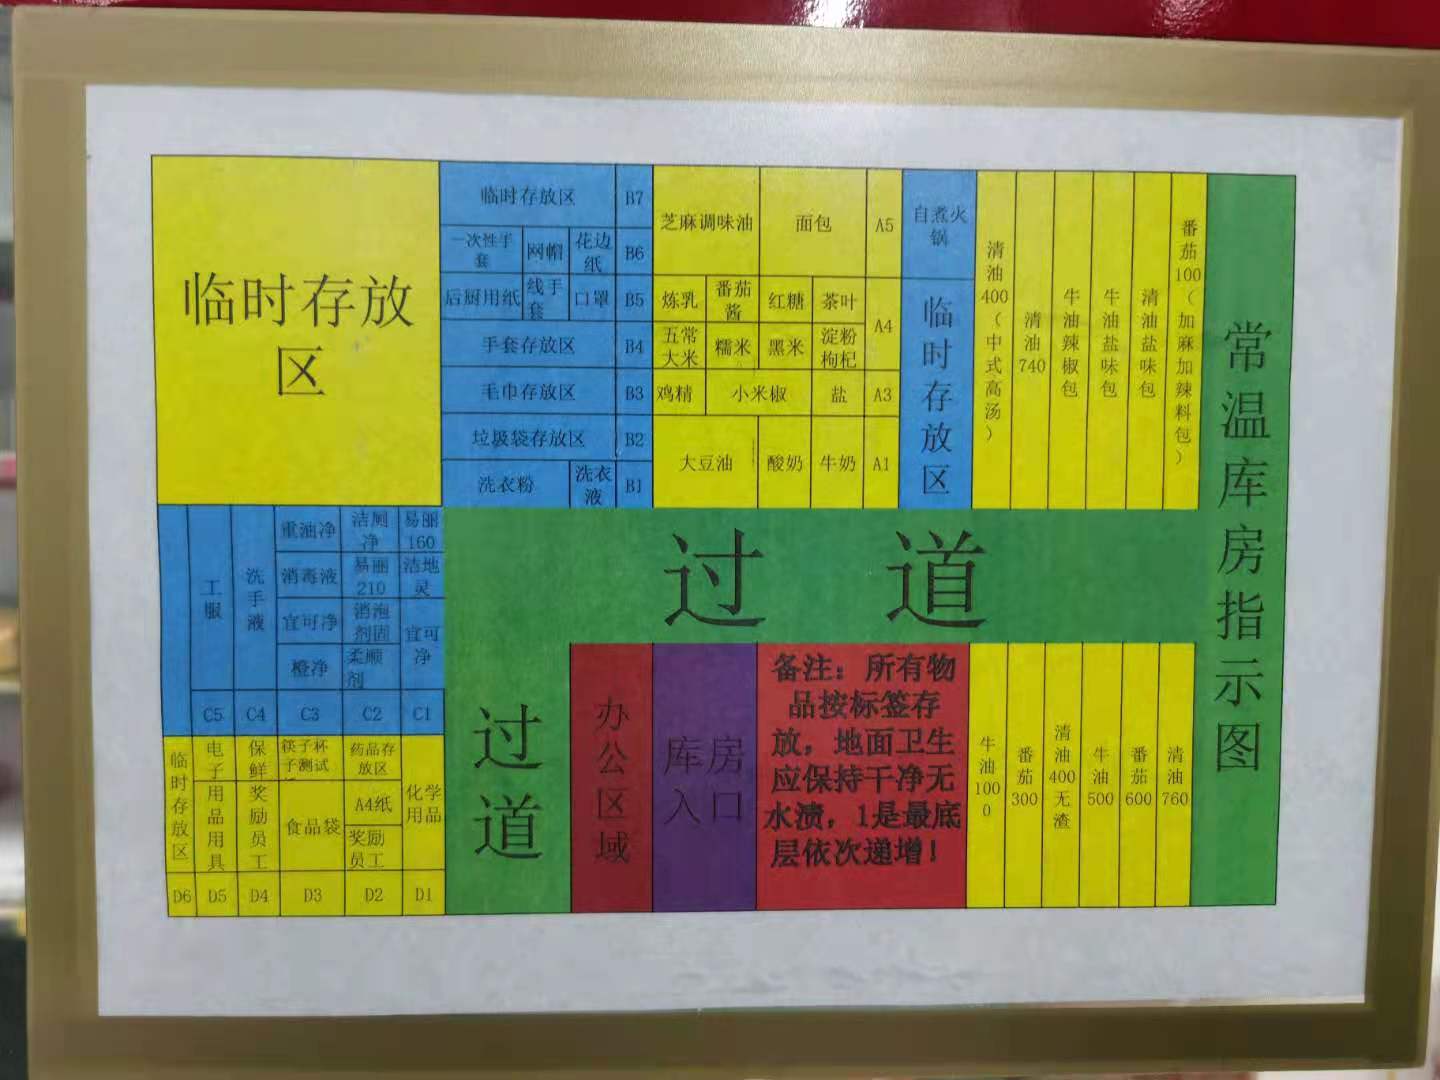 临时存放
区
临时存放区
B7
一次性手
套
网帽
花边
纸
B6
后厨用纸
线手
套
口罩
B5
手套存放区
B4
毛巾存放区
B3
垃圾袋存放区
B2
洗衣粉
洗衣
液
B1
芝麻调味油
面包
A5
炼乳
番茄
酱
红糖
茶叶
A4
五常
大米
糯米
黑米
淀粉
枸杞
鸡精
小米椒
盐
A3
大豆油
酸奶
牛奶
A1
自煮火
锅
临时存放区
清油400(中式高汤)
清油740
牛油辣椒包
牛油盐味包
清油盐味包
番茄100(加麻加辣料包)
常温库房指示图
工服
洗手液
重油净
洁厕
净
易丽
160
消毒液
易丽
210
洁地
灵
宜可净
消泡
剂固
宜可
净
橙净
柔顺
剂
C5
C4
C3
C2
C1
过道
过道
办公区域
库房
入口
备注：所有物
品按标签存
放，地面卫生
应保持干净无
水渍，1是最底
层依次递增！
牛油1000
番茄300
清油400无渣
牛油500
番茄600
清油760
临时存放区
电子
用品用具
保鲜
奖励员工
筷子杯
子测试
食品袋
药品存
放区
A4纸
奖励
员工
化学
用品
D6
D5
D4
D3
D2
D1